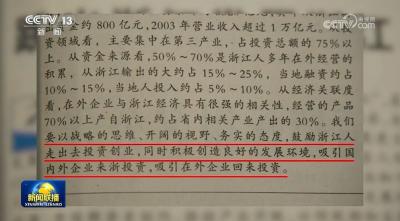 CCTV 13
新闻
央视网
金约 800 亿元, 2003 年营业收入超过 1 万亿元。从投
资领域看, 主要集中在第三产业, 占投资总额的 75%以
上。从资金来源看, 50%~70%是浙江人多年在外经营的
积累, 从浙江输出的大约占 15%~25%, 当地融资约占
10%~15%, 当地人投入约占 5%~10%。从经济关联度
看, 在外企业与浙江经济具有很强的相关性, 经营的产品
70%以上产自浙江, 约占省内相关产业产出的30%。我们
要以战略的思维、开阔的视野、务实的态度, 鼓励浙江人
走出去投资创业, 同时积极创造良好的发展环境, 吸引国
内外企业来浙投资, 吸引在外企业回来投资。
新闻联播